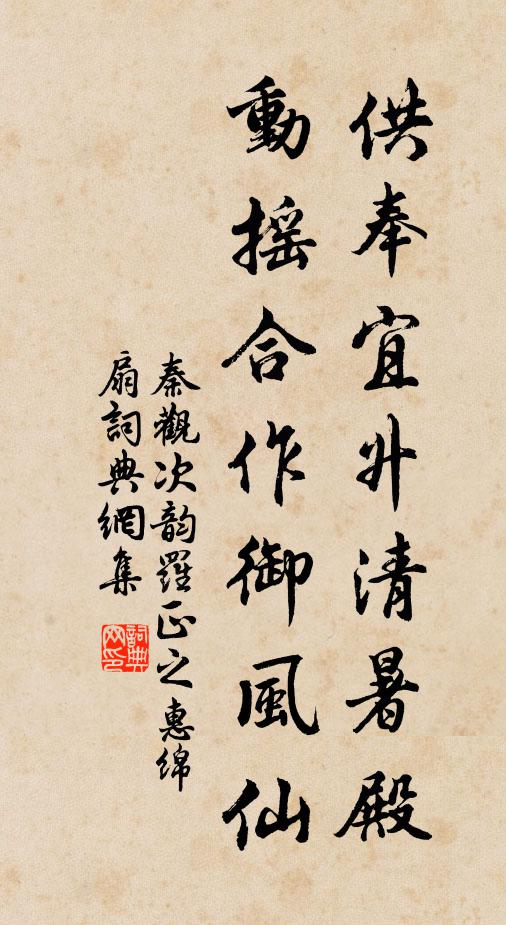 供奉宜升清暑殿
動搖合作御風仙
秦觀次韵羅正之惠綿
扇詞典網集
詞典
网印